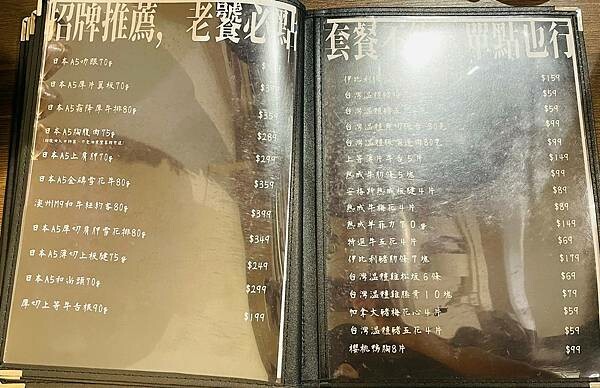 招牌推薦, 老饕必點
日本A5肋眼70g
日本A5厚片蓋板70g
$359
日本A5霜降厚牛排80g
$359
日本A5胸腹肉75g
$289
日本A5上肩胛70g
$299
日本A5金磚雪花牛80g
$359
澳州M9和牛紐約客80g
$399
日本A5厚切肩胛雪花排80g
$349
日本A5薄切上板腱75g
$249
日本A5和尚頭70g
$299
厚切上等牛舌根90g
$199
套餐 單點也行
伊比利 $159
台灣溫體豬 $59
台灣溫體豬五花 $59
台灣溫體 $99
台灣溫體 80克 $99
上等薄片牛舌5片 $149
熟成牛肋條5塊 $99
安格斯熟成板腱4片 $89
熟成牛梅花4片 $89
熟成羊菲力70g $149
特選牛五花4片 $69
伊比利豬肋條7塊 $179
台灣溫體雞松坂6條 $69
台灣溫體雞膝骨10塊 $79
加拿大豬梅花心4片 $59
台灣溫體豬五花4片 $59
櫻桃鴨胸8片 $99